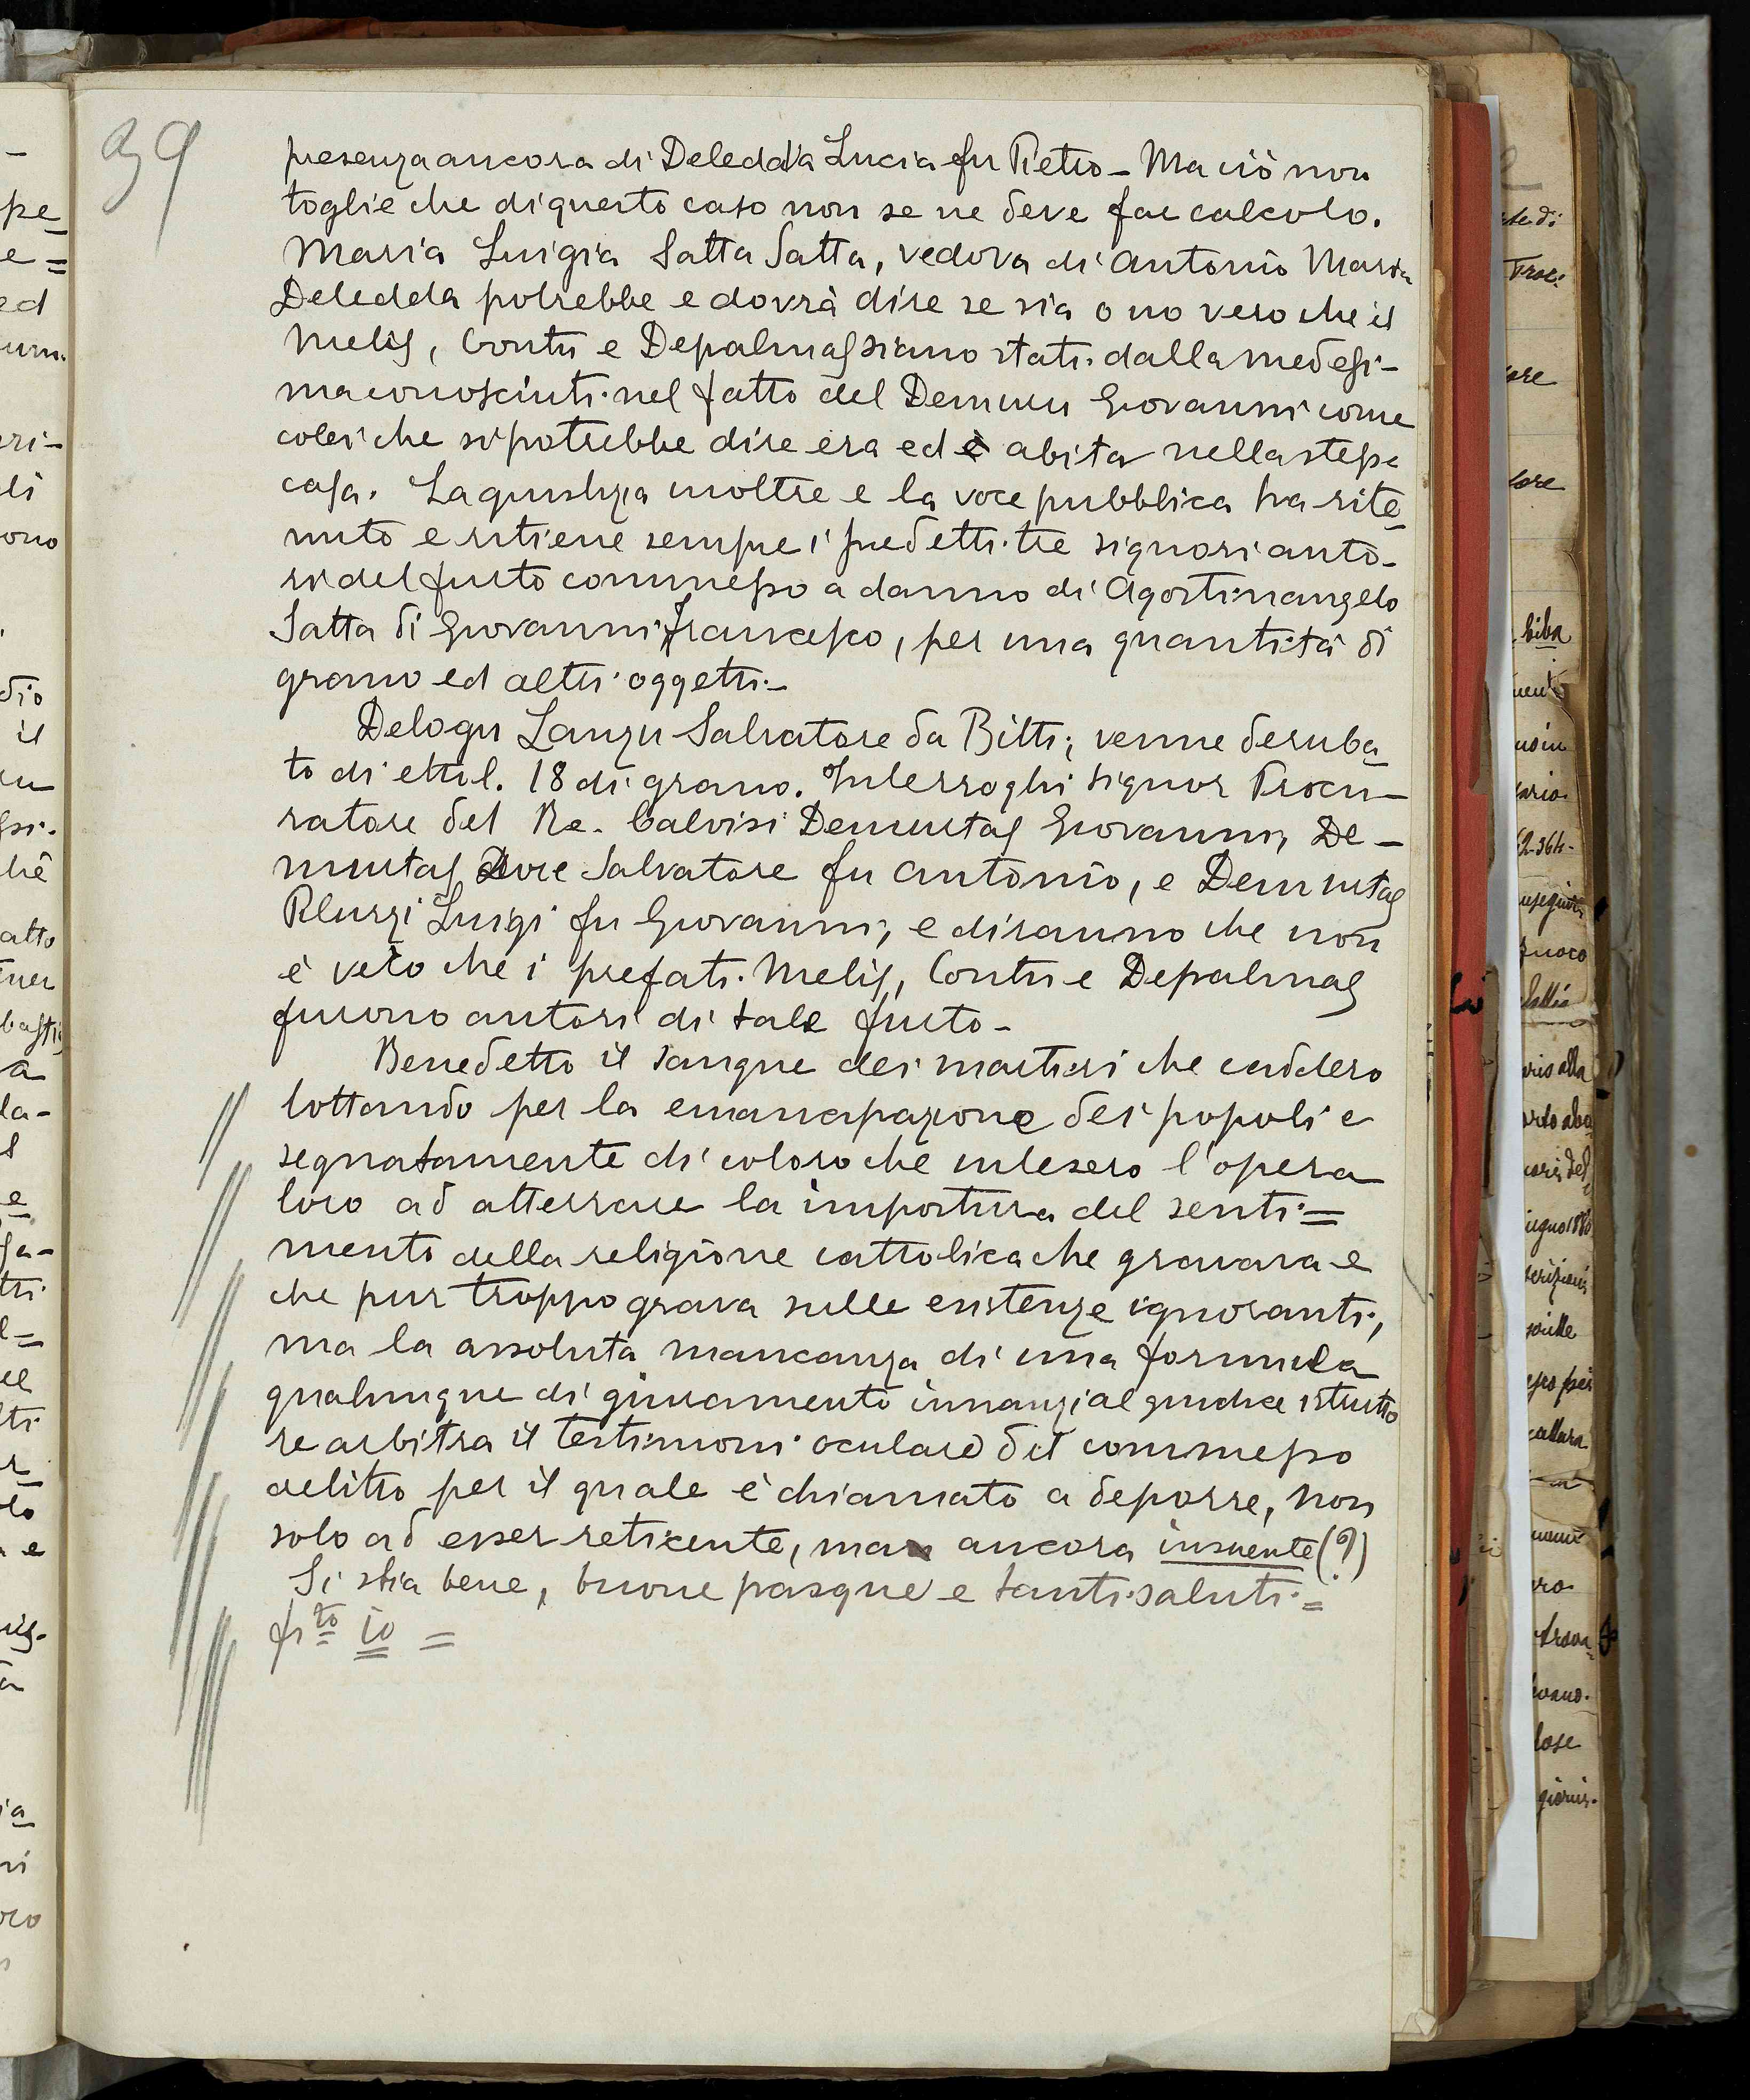 39
presenza ancora di Deledda Lucia fu Pietro - Ma ciò non
toglie che di questo caso non se ne deve far calcolo.
Maria Luigia Satta Satta, vedova di Antonio Maria
Deledda potrebbe e dovrà dire se sia o no vero che il
Melis, Contu e Depalmas siano stati dalla medesi-
ma conosciuti nel fatto del Demuru Giovanni come
colei che si potrebbe dire era ed è abita nella stessa
casa. La giustizia inoltre e la voce pubblica ha rite-
nuto e ritiene sempre i predetti tre signori auto-
ri del furto commesso a danno di Agostinangelo
Satta di Giovanni Francesco, per una quantità di
grano ed altri oggetti. -
Delogu Sanzu Salvatore da Bitti, venne deruba-
to di ettol. 18 di grano. Interroghi signor Procu-
ratore del Re. Calvisi Demurtas Giovanni, De-
murtas Dore Salvatore fu Antonio, e Demurtas
Ruzzi Luigi fu Giovanni, e diranno che non
è vero che i prefati Melis, Contu e Depalmas
furono autori di tale furto -
Benedetto il sangue dei martiri che caddero
lottando per la emancipazione dei popoli e
segnatamente di coloro che intesero l'opera
loro ad atterrare la impostura del senti=
mento della religione cattolica che gravava e
che pur troppo grava sulle esistenze ignoranti,
ma la assoluta mancanza di una formula
qualunque di giuramento innanzi al giudice istrutto
re arbitra il testimoni oculare del commesso
delitto per il quale è chiamato a deporre, non
solo ad esser reticente, ma ancora insuente (?)
Si stia bene, buone pasque e tanti saluti =
fr.to io =